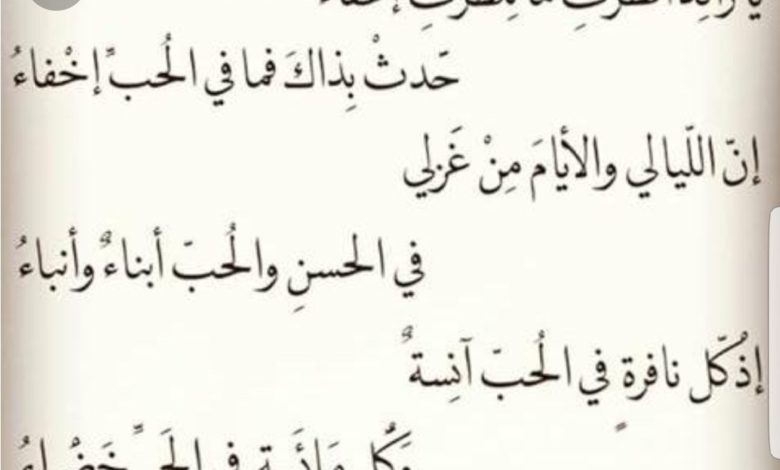 حّدثْ بِذاكَ فما في الحُبِّ إخْفاءُ
إنّ اللّيالي والأيامَ مِنْ غَزلي
في الحسنِ والحُبّ أبناءٌ وأنباءُ
إذُكّل نافرةٍ في الحُبّ آنِسةٌ
وَكُل في